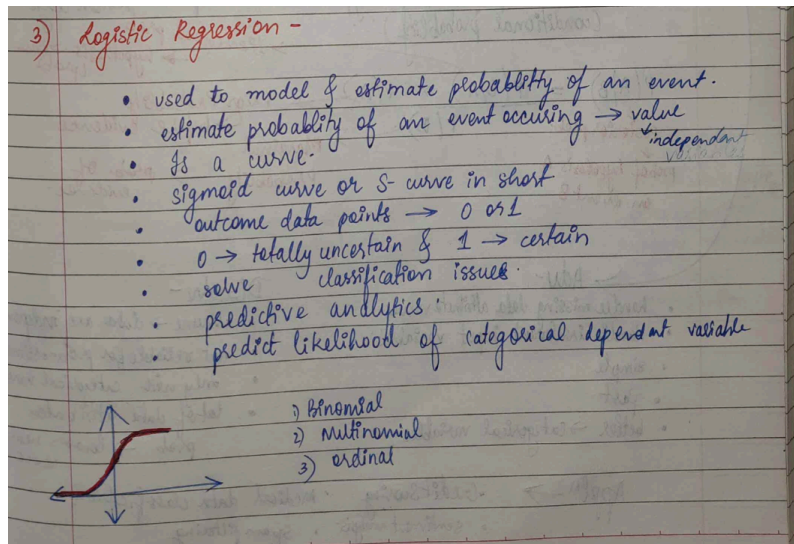 3) Logistic Regression -
• used to model & estimate probablitty of an event.
• estimate probablity of an event occuring → value
↓ independent
variables
• Is a curve.
• sigmoid curve or S- curve in short
• outcome data points → 0 or 1
• 0 → totally uncertain & 1 → certain
• solve classification issues.
• predictive analytics.
predict likelihood of categorical dependant variable
1) Binomial
2) Multinomial
3) ordinal